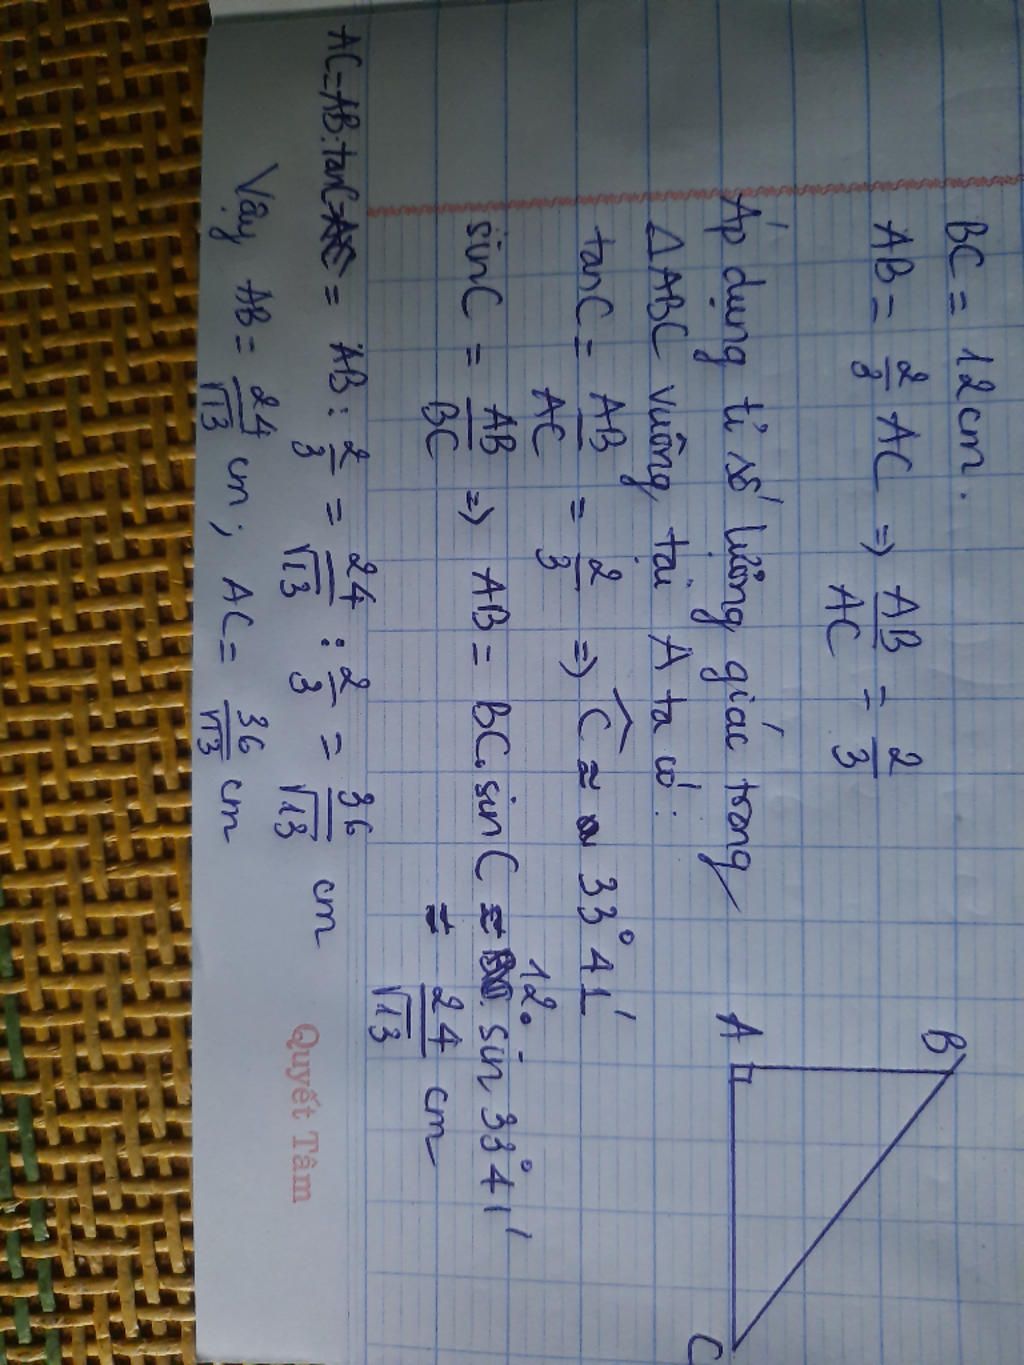 BC = 12cm.
AB = 2/3 AC => AB/AC = 2/3
Áp dụng tỉ số lượng giác trong
Δ ABC vuông tại A ta có:
tanC = AB/AC = 2/3 => Ĉ ≈ 33°41'
sinC = AB/BC => AB = BC.sinC = 12. sin 33°41'
= 24/√13 cm
AC = AB:tanC = AB : 2/3 = 24/√13 : 2/3 = 36/√13 cm
Vậy AB = 24/√13 cm; AC = 36/√13 cm
B
A
C
Quyết Tâm